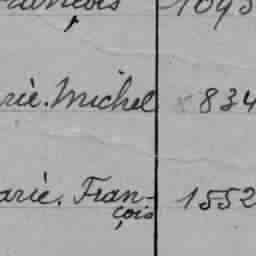 rançois 1095
rie. Michel 834
arie. Fran-
çois 1552